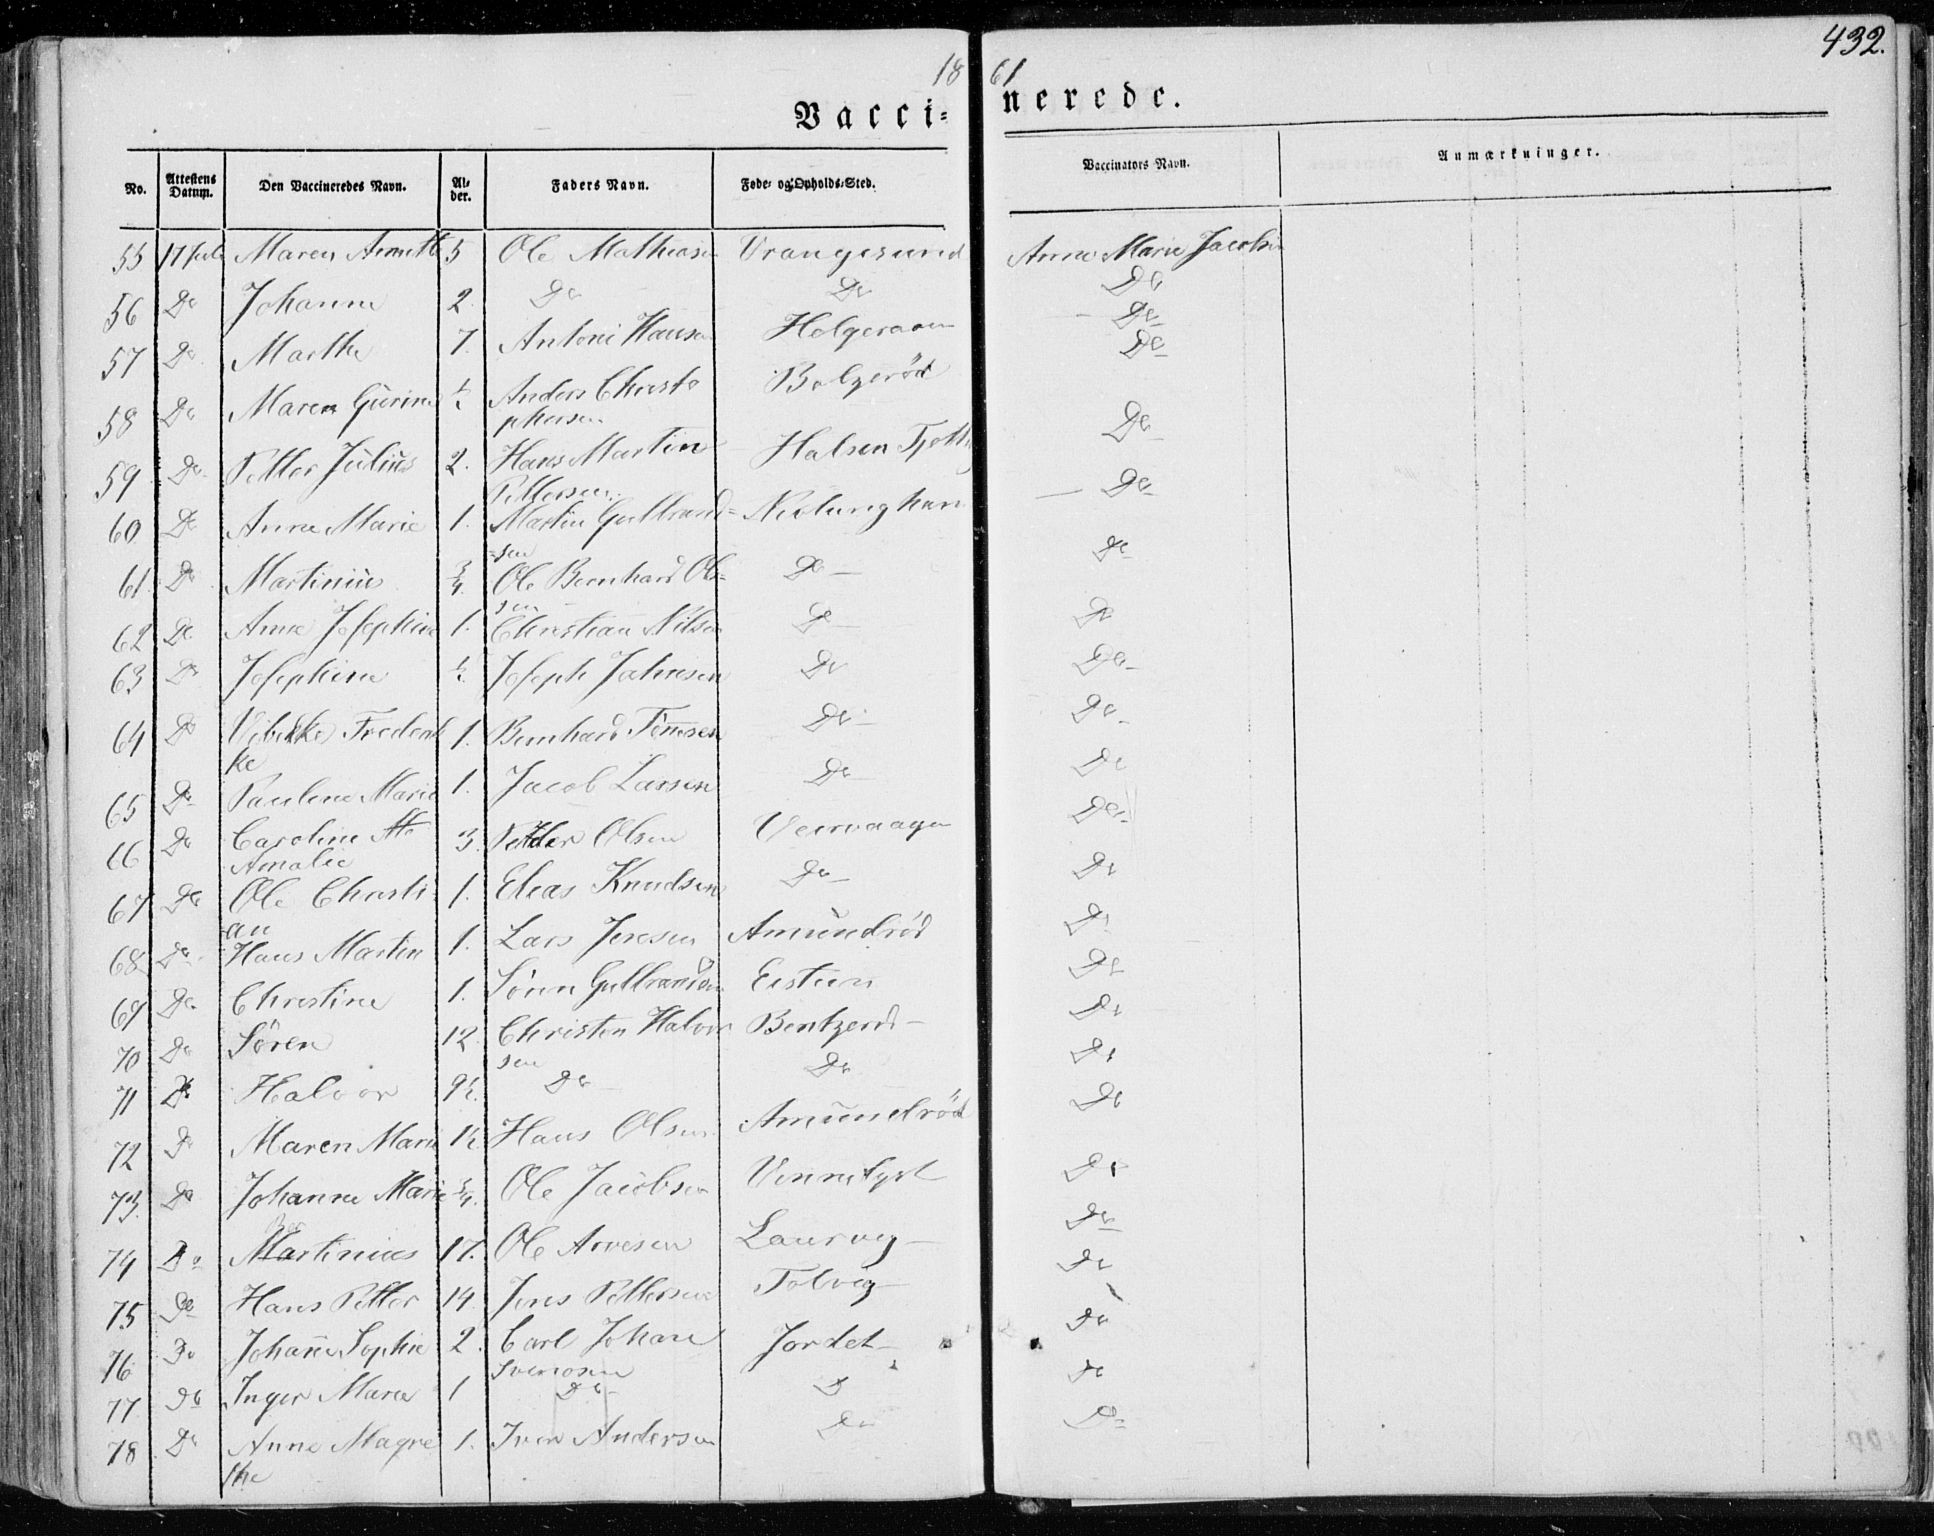 432.
18 61
Vacci- nerede.
No. Attestens Datum. Den Vaccineredes Navn. Al-der. Faders Navn. Føde- og Opholds-Sted. Vaccinators Navn. Anmærkninger.
55 17 Juli Maren Annette 5 Ole Mathiasen Vrangesund Anne Marie Jacobsen
56 Do Johanne 2. Do Do Do
57 Do Marthe 7. Antoni Hansen Helgeraaen Do
58 Do Maren Gurine ½ Anders Christo Bolgerød Do
phersen
59 Do Petter Julius 2. Hans Martin Halsen Do
Pettersen
60 Do Anne Marie 1. Martin Gulbrand= Nevlunghavn Do
=sen
61 Do Martinius ¾. Ole Bernhard Ol= Do Do
sen
62 Do Anne Josephine 1. Christian Nilsen Do Do
63 Do Josephine ½. Joseph Johnsen Do Do
64 Do Vibekke Frederik 1. Bernhard Do Do
ke
65 Do Pauline Marie 1. Jacob Larsen Do Do
66 Do Caroline 3. Petter Olsen Veervaagen Do
Amalie
67 Do Ole Christi 1. Elias Knudsen Do Do
an
68 Do Hans Martin 1. Lars Jensen Amundrød Do
69 Do Christine 1. Sören Gulbrandsen Eistun Do
70 Do Sören 12 Christen Halvor Bentzerd Do
sen
71 Do Halvor 9½. Do Do Do
72 Do Maren Marie 1½ Hans Olsen Amundrød Do
73. Do Johanne Marie ¾. Ole Jacobsen Vennelyst Do
74 Do Martinius 17. Ole Arvesen Laurvig Do
75 Do Hans Petter 14 Jens Pettersen Tolvig Do
76 Do Johanne Sophie 2. Carl Johan Jordet Do
Iversosen
77 Do Inger Marie 1 Do D Do
78 Do Anne Magre 1. Iver Andersen Do Do
the